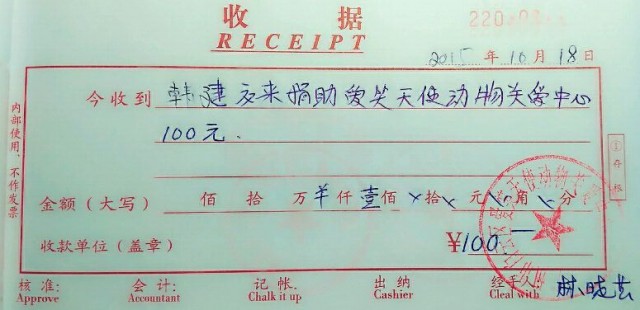 收 据
RECEIPT
2015 年 10 月 18 日
今收到 韩建 交来捐助爱笑天使动物关爱中心
100元.
金额(大写) 佰 拾 万 羊 仟 壹 佰 × 拾 × 元 × 角 × 分
收款单位(盖章) ¥100—
内部使用、不作发票
①存根
核准: 会计: 记帐. 出纳 经手人
Approve Accountant Chalk it up Cashier Cleal with